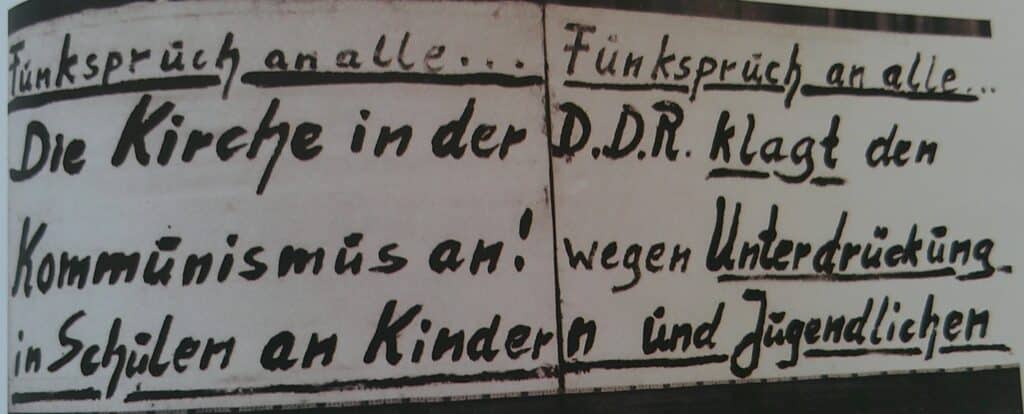 Funkspruch an alle... Funkspruch an alle...
Die Kirche in der D.D.R. klagt den
Kommunismus an! wegen Unterdrückung
in Schulen an Kindern und Jugendlichen